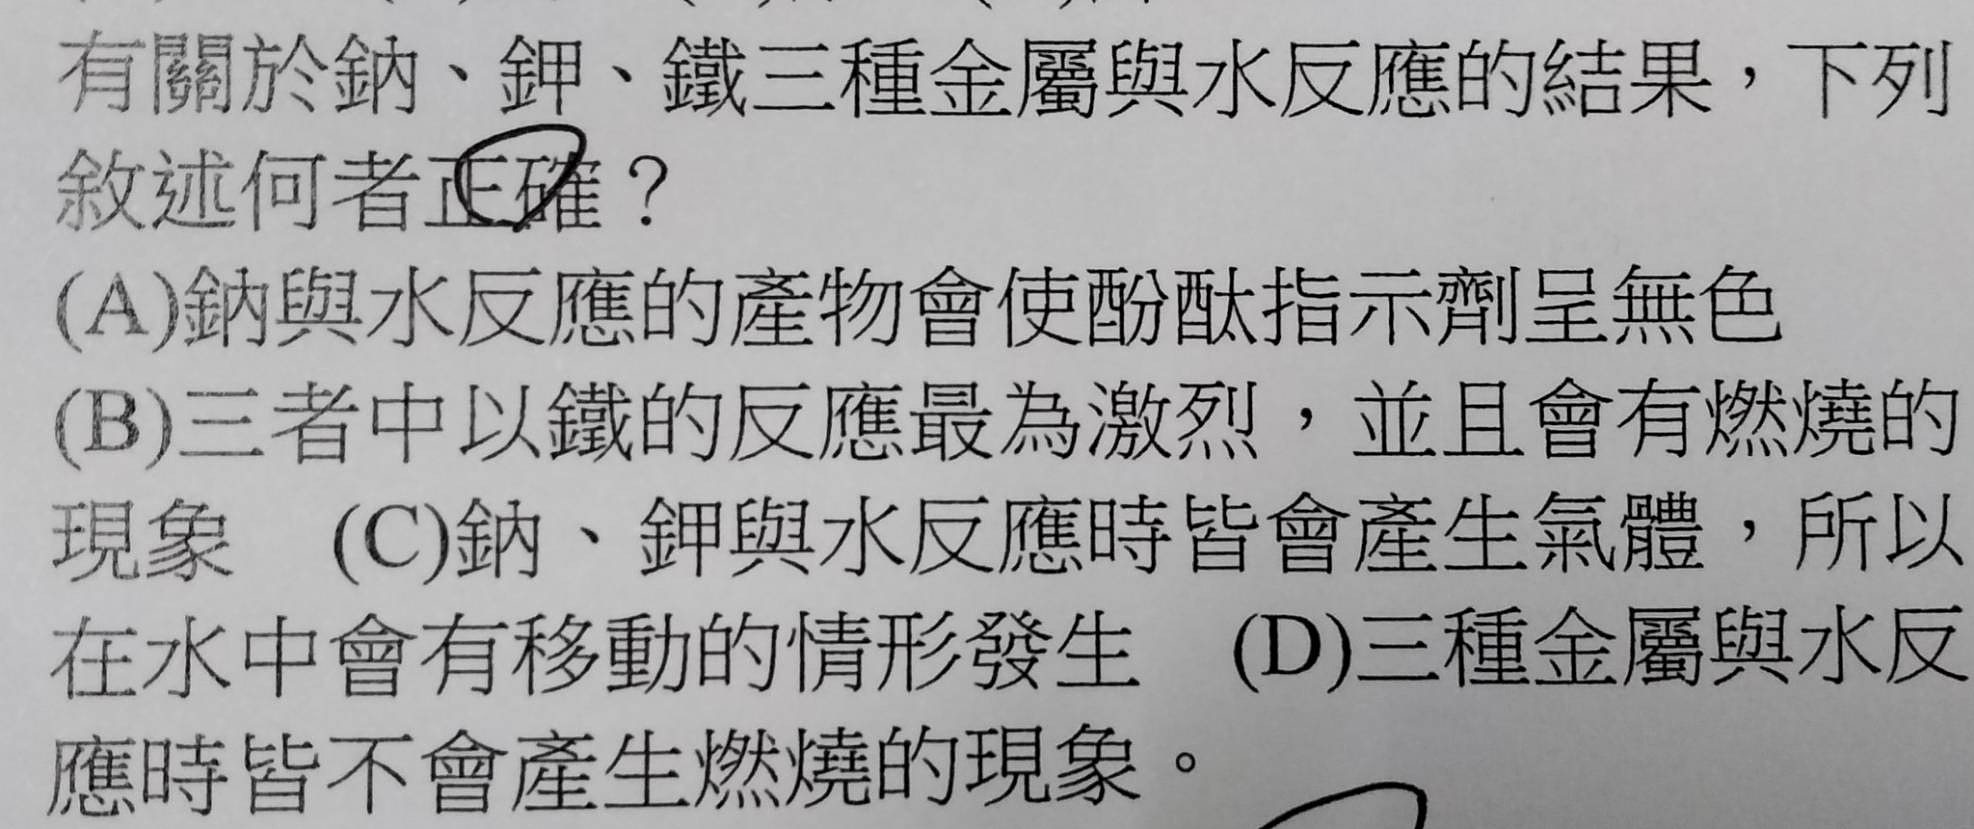 有關於鈉、鉀、鐵三種金屬與水反應的結果，下列
敘述何者正確？
(A)鈉與水反應的產物會使酚酞指示劑呈無色
(B)三者中以鐵的反應最為激烈，並且會有燃燒的
現象　(C)鈉、鉀與水反應時皆會產生氣體，所以
在水中會有移動的情形發生　(D)三種金屬與水反
應時皆不會產生燃燒的現象。